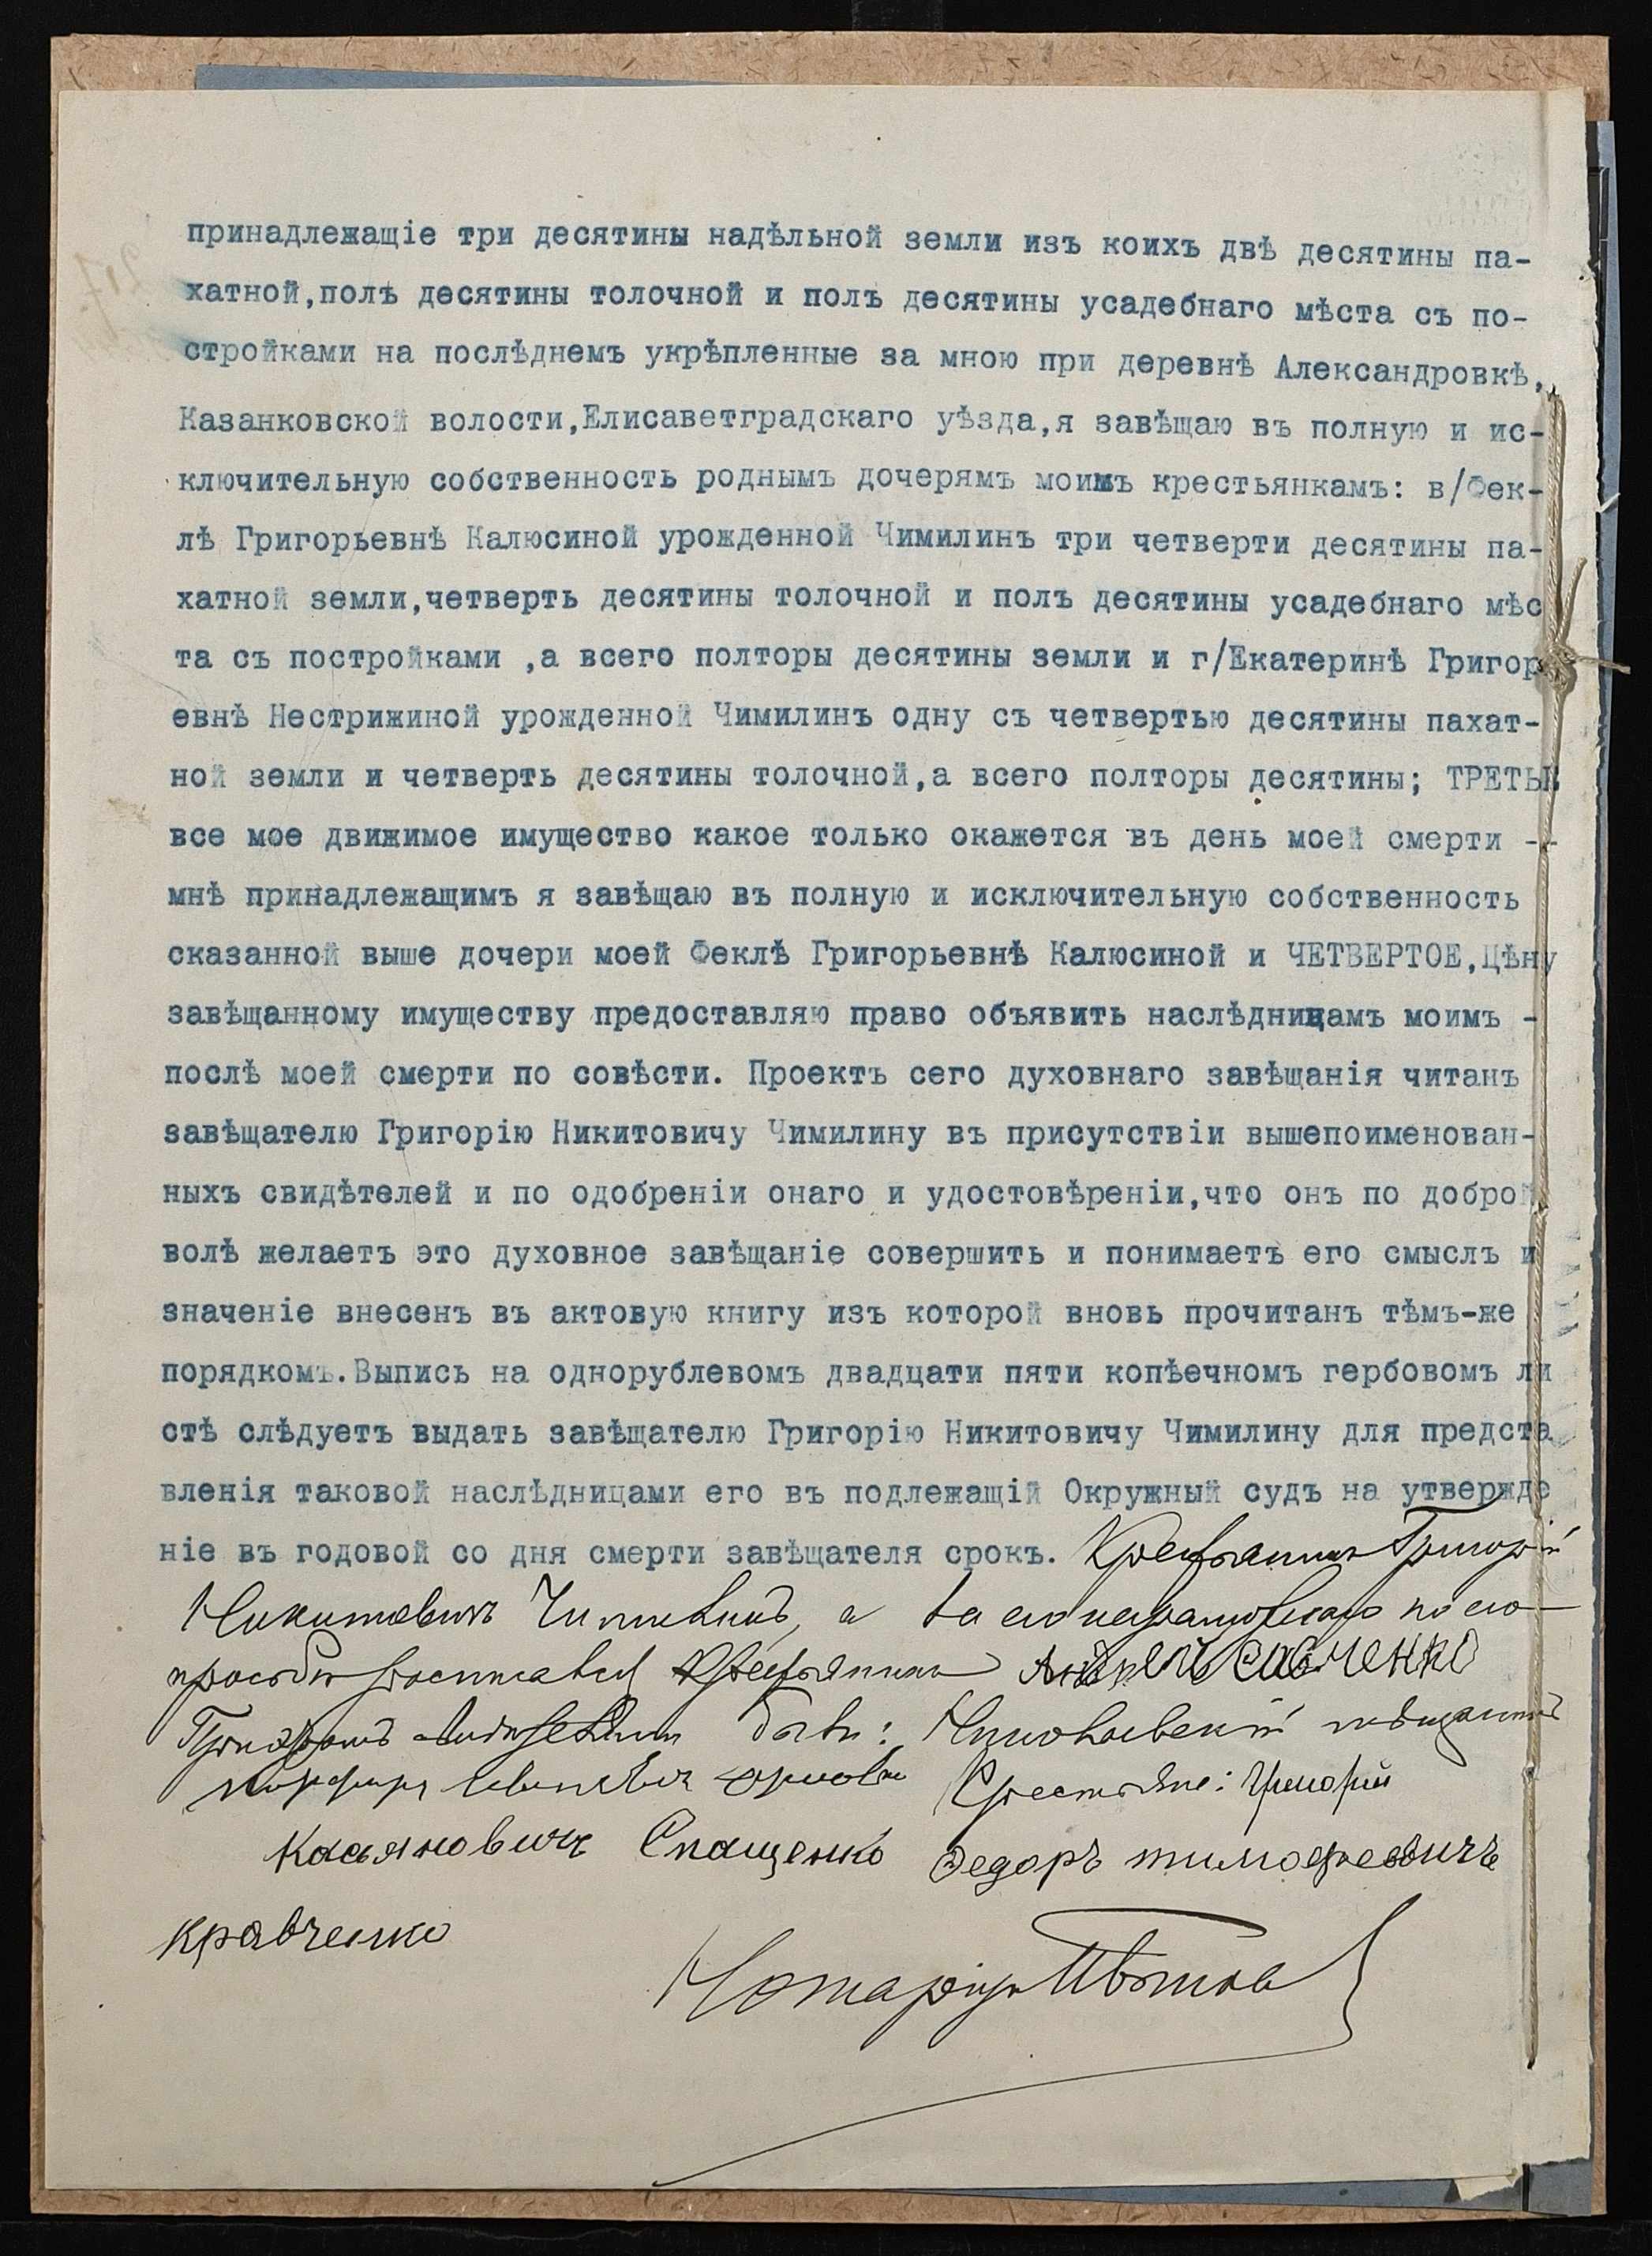 принадлежащіе три десятины надѣльной земли изъ коихъ двѣ десятины па-
хатной,полъ десятины толочной и полъ десятины усадебнаго мѣста съ по-
стройками на послѣднемъ укрѣпленные за мною при деревнѣ Александровкѣ,
Казанковской волости,Елисаветградскаго уѣзда,я завѣщаю въ полную и ис-
ключительную собственность роднымъ дочерямъ моимъ крестьянкамъ: в/Фек-
лѣ Григорьевнѣ Калюсиной урожденной Чимилинъ три четверти десятины па-
хатной земли,четверть десятины толочной и полъ десятины усадебнаго мѣс
та съ постройками ,а всего полторы десятины земли и г/Екатеринѣ Григор
евнѣ Нестрижиной урожденной Чимилинъ одну съ четвертью десятины пахат-
ной земли и четверть десятины толочной,а всего полторы десятины; ТРЕТЬЕ
все мое движимое имущество какое только окажется въ день моей смерти --
мнѣ принадлежащимъ я завѣщаю въ полную и исключительную собственность
сказанной выше дочери моей Феклѣ Григорьевнѣ Калюсиной и ЧЕТВЕРТОЕ,Цѣну
завѣщанному имуществу предоставляю право объявить наслѣдницамъ моимъ -
послѣ моей смерти по совѣсти. Проектъ сего духовнаго завѣщанія читанъ
завѣщателю Григорію Никитовичу Чимилину въ присутствіи вышепоименован-
ныхъ свидѣтелей и по одобреніи онаго и удостовѣреніи,что онъ по доброй
волѣ желаетъ это духовное завѣщаніе совершить и понимаетъ его смыслъ и
значеніе внесенъ въ актовую книгу изъ которой вновь прочитанъ тѣмъ-же
порядкомъ.Выпись на однорублевомъ двадцати пяти копѣечномъ гербовомъ ли
стѣ слѣдуетъ выдать завѣщателю Григорію Никитовичу Чимилину для предста
вленія таковой наслѣдницами его въ подлежащій Окружный судъ на утвержде
ніе въ годовой со дня смерти завѣщателя срокъ. Крестьянинъ Григорій
Никитовичъ Чимилинъ, а за его неграмотного по его
просьбѣ росписался крестьянинъ Андрей Савченко
При семъ свидѣтелями были: Николаевскій мѣщанинъ
Крестьяне: Григорій
Касьяновичъ Спащенко Федоръ тимофеевичъ
кравченко
Нотаріусъ